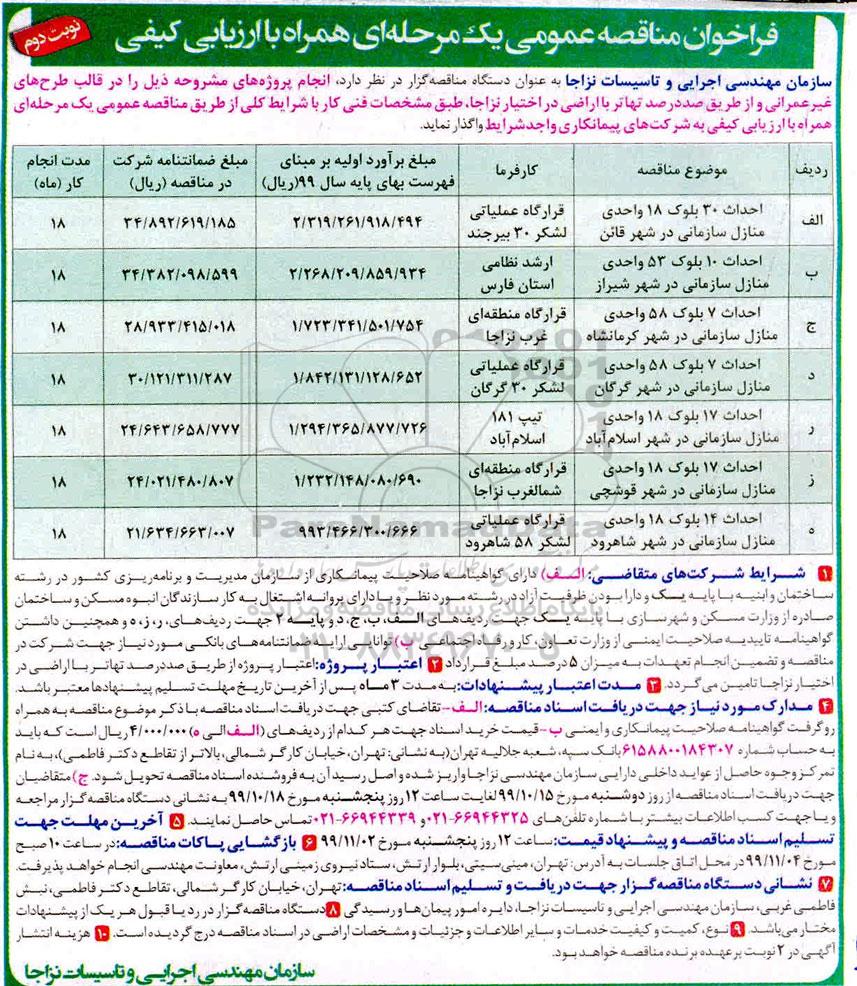 فراخوان مناقصه عمومی یک مرحله‌ای همراه با ارزیابی کیفی
نوبت دوم
سازمان مهندسی اجرایی و تاسیسات نزاجا به عنوان دستگاه مناقصه‌گزار در نظر دارد، انجام پروژه‌های مشروحه ذیل را در قالب طرح‌های
غیرعمرانی و از طریق صددرصد تهاتر با اراضی در اختیار نزاجا، طبق مشخصات فنی کار با شرایط کلی از طریق مناقصه عمومی یک مرحله‌ای
همراه با ارزیابی کیفی به شرکت‌های پیمانکاری واجد شرایط واگذار نماید.
ردیف موضوع مناقصه کارفرما مبلغ برآورد اولیه بر مبنای فهرست بهای پایه سال ۹۹ (ریال) مبلغ ضمانتنامه شرکت در مناقصه (ریال) مدت انجام کار (ماه)
الف احداث ۳۰ بلوک ۱۸ واحدی منازل سازمانی در شهر قائن قرارگاه عملیاتی لشکر ۳۰ بیرجند ۲/۳۱۹/۲۶۱/۹۱۸/۴۹۴ ۳۴/۸۹۲/۶۱۹/۱۸۵ ۱۸
ب احداث ۱۰ بلوک ۵۳ واحدی منازل سازمانی در شهر شیراز ارشد نظامی استان فارس ۲/۲۶۸/۲۰۹/۸۵۹/۹۳۴ ۳۴/۳۸۲/۰۹۸/۵۹۹ ۱۸
ج احداث ۷ بلوک ۵۸ واحدی منازل سازمانی در شهر کرمانشاه قرارگاه منطقه‌ای غرب نزاجا ۱/۷۲۳/۳۴۱/۵۰۱/۷۵۴ ۲۸/۹۳۳/۴۱۵/۰۱۸ ۱۸
د احداث ۷ بلوک ۵۸ واحدی منازل سازمانی در شهر گرگان قرارگاه عملیاتی لشکر ۳۰ گرگان ۱/۸۴۲/۱۳۱/۱۲۸/۶۵۲ ۳۰/۱۲۱/۳۱۱/۲۸۷ ۱۸
ر احداث ۱۷ بلوک ۱۸ واحدی منازل سازمانی در شهر اسلام‌آباد تیپ ۱۸۱ اسلام‌آباد ۱/۲۹۴/۳۶۵/۸۷۷/۷۲۶ ۲۴/۶۴۳/۶۵۸/۷۷۷ ۱۸
ز احداث ۱۷ بلوک ۱۸ واحدی منازل سازمانی در شهر قوشچی قرارگاه منطقه‌ای شمالغرب نزاجا ۱/۲۳۲/۱۴۸/۰۸۰/۶۹۰ ۲۴/۰۲۱/۴۸۰/۸۰۷ ۱۸
ه احداث ۱۴ بلوک ۱۸ واحدی منازل سازمانی در شهر شاهرود قرارگاه عملیاتی لشکر ۵۸ شاهرود ۹۹۳/۴۶۶/۳۰۰/۶۶۶ ۲۱/۶۳۴/۶۶۳/۰۰۷ ۱۸
۱ شرایط شرکت‌های متقاضی: الف) دارای گواهینامه صلاحیت پیمانکاری از سازمان مدیریت و برنامه‌ریزی کشور در رشته
ساختمان و ابنیه با پایه یک و دارا بودن ظرفیت آزاد در رشته مورد نظر و یا دارای پروانه اشتغال به کار سازندگان انبوه مسکن و ساختمان
صادره از وزارت مسکن و شهرسازی با پایه یک جهت ردیف‌های الف، ب، ج، د و پایه ۲ جهت ردیف‌های ر، ز، ه و همچنین داشتن
گواهینامه تاییدیه صلاحیت ایمنی از وزارت تعاون، کار و رفاه اجتماعی ب) توانایی ارایه ضمانتنامه‌های بانکی مورد نیاز جهت شرکت در
مناقصه و تضمین انجام تعهدات به میزان ۵ درصد مبلغ قرارداد ۲ اعتبار پروژه: اعتبار پروژه از طریق صددرصد تهاتر با اراضی در
اختیار نزاجا تامین می‌گردد. ۳ مدت اعتبار پیشنهادات: به مدت ۳ ماه پس از آخرین تاریخ مهلت تسلیم پیشنهادها معتبر باشد.
۴ مدارک مورد نیاز جهت دریافت اسناد مناقصه: الف- تقاضای کتبی جهت دریافت اسناد مناقصه با ذکر موضوع مناقصه به همراه
رو گرفت گواهینامه صلاحیت پیمانکاری و ایمنی ب- قیمت خرید اسناد جهت هر کدام از ردیف‌های (الف الی ه) ۴/۰۰۰/۰۰۰ ریال است که باید
به حساب شماره ۶۱۵۸۸۰۰۱۸۴۳۰۷ بانک سپه، شعبه جلالیه تهران (به نشانی: تهران، خیابان کارگر شمالی، بالاتر از تقاطع دکتر فاطمی)، به نام
تمرکز وجوه حاصل از عواید داخلی دارایی سازمان مهندسی نزاجا واریز شده و اصل رسید آن به فروشنده اسناد مناقصه تحویل شود. ج) متقاضیان
جهت دریافت اسناد مناقصه از روز دوشنبه مورخ ۹۹/۱۰/۱۵ لغایت ساعت ۱۲ روز پنجشنبه مورخ ۹۹/۱۰/۱۸ به نشانی دستگاه مناقصه گزار مراجعه
و یا جهت کسب اطلاعات بیشتر با شماره تلفن‌های ۶۶۹۴۴۳۲۵-۰۲۱ و ۶۶۹۴۴۳۳۹-۰۲۱ تماس حاصل نمایند. ۵ آخرین مهلت جهت
تسلیم اسناد مناقصه و پیشنهاد قیمت: ساعت ۱۲ روز پنجشنبه مورخ ۹۹/۱۱/۰۲ ۶ بازگشایی پاکات مناقصه: در ساعت ۱۰ صبح
مورخ ۹۹/۱۱/۰۴ در محل اتاق جلسات به آدرس: تهران، مینی‌سیتی، بلوار ارتش، ستاد نیروی زمینی ارتش، معاونت مهندسی انجام خواهد پذیرفت.
۷ نشانی دستگاه مناقصه گزار جهت دریافت و تسلیم اسناد مناقصه: تهران، خیابان کارگر شمالی، تقاطع دکتر فاطمی، نبش
فاطمی غربی، سازمان مهندسی اجرایی و تاسیسات نزاجا، دایره امور پیمان‌ها و رسیدگی ۸ دستگاه مناقصه گزار در رد یا قبول هر یک از پیشنهادات
مختار می‌باشد. ۹ نوع، کمیت و کیفیت خدمات و سایر اطلاعات و جزئیات و مشخصات اراضی در اسناد مناقصه درج گردیده است. ۱۰ هزینه انتشار
آگهی در ۲ نوبت بر عهده برنده مناقصه خواهد بود.
سازمان مهندسی اجرایی و تاسیسات نزاجا
ParsNamadData
پایگاه اطلاع رسانی مناقصه و مزایده